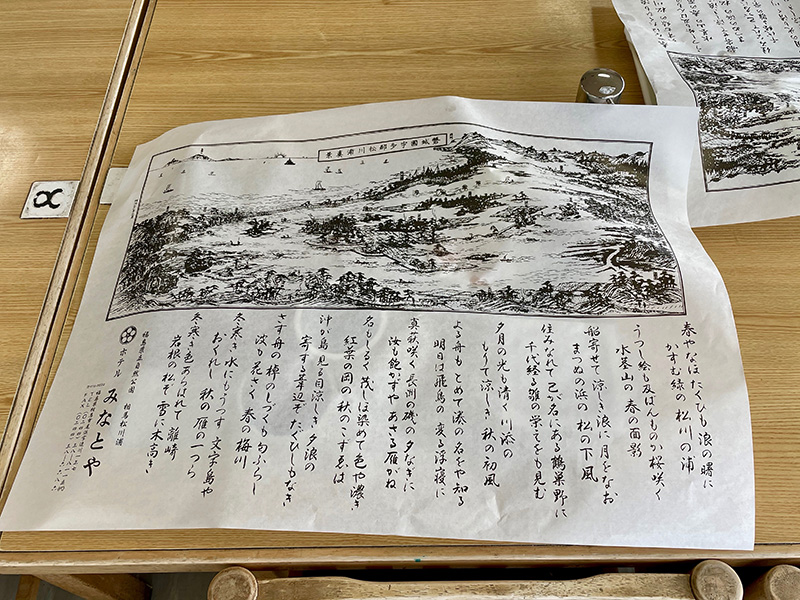 磐城國宇多郡松川浦眞景
春やなほたくひも浪の曙に
かすむ緑の松川の浦
うつし絵も及ばんものか桜咲く
水茎山の春の面影
船寄せて涼しき浪に月をなお
まつぬの浜の松の下風
住みなれて己が名にある鶴巣野に
千代経る雛の栄てをも見む
夕月の光も清く川添の
もりて涼しき秋の初風
よる舟もとめて湊の名をや知る
明日は飛鳥の変る浮寝に
真萩咲く長洲の磯の夕なぎに
汝も飽かずやあさる雁がね
名もしるく茂しほ染めて色や濃き
紅葉の岡の秋のこずゑは
沖か島見る目涼しき夕浪の
寄する葦辺ぞたくひしもなき
さす舟の棹のしづくも匂ふらし
波も花さく春の梅川
冬寒き水にもうつす文字島や
おくれし秋の雁の一つら
冬寒き色あらはれて離崎
岩根の松も雪に木高き
福島県立自然公園 相馬松川浦
ホテル みなとや